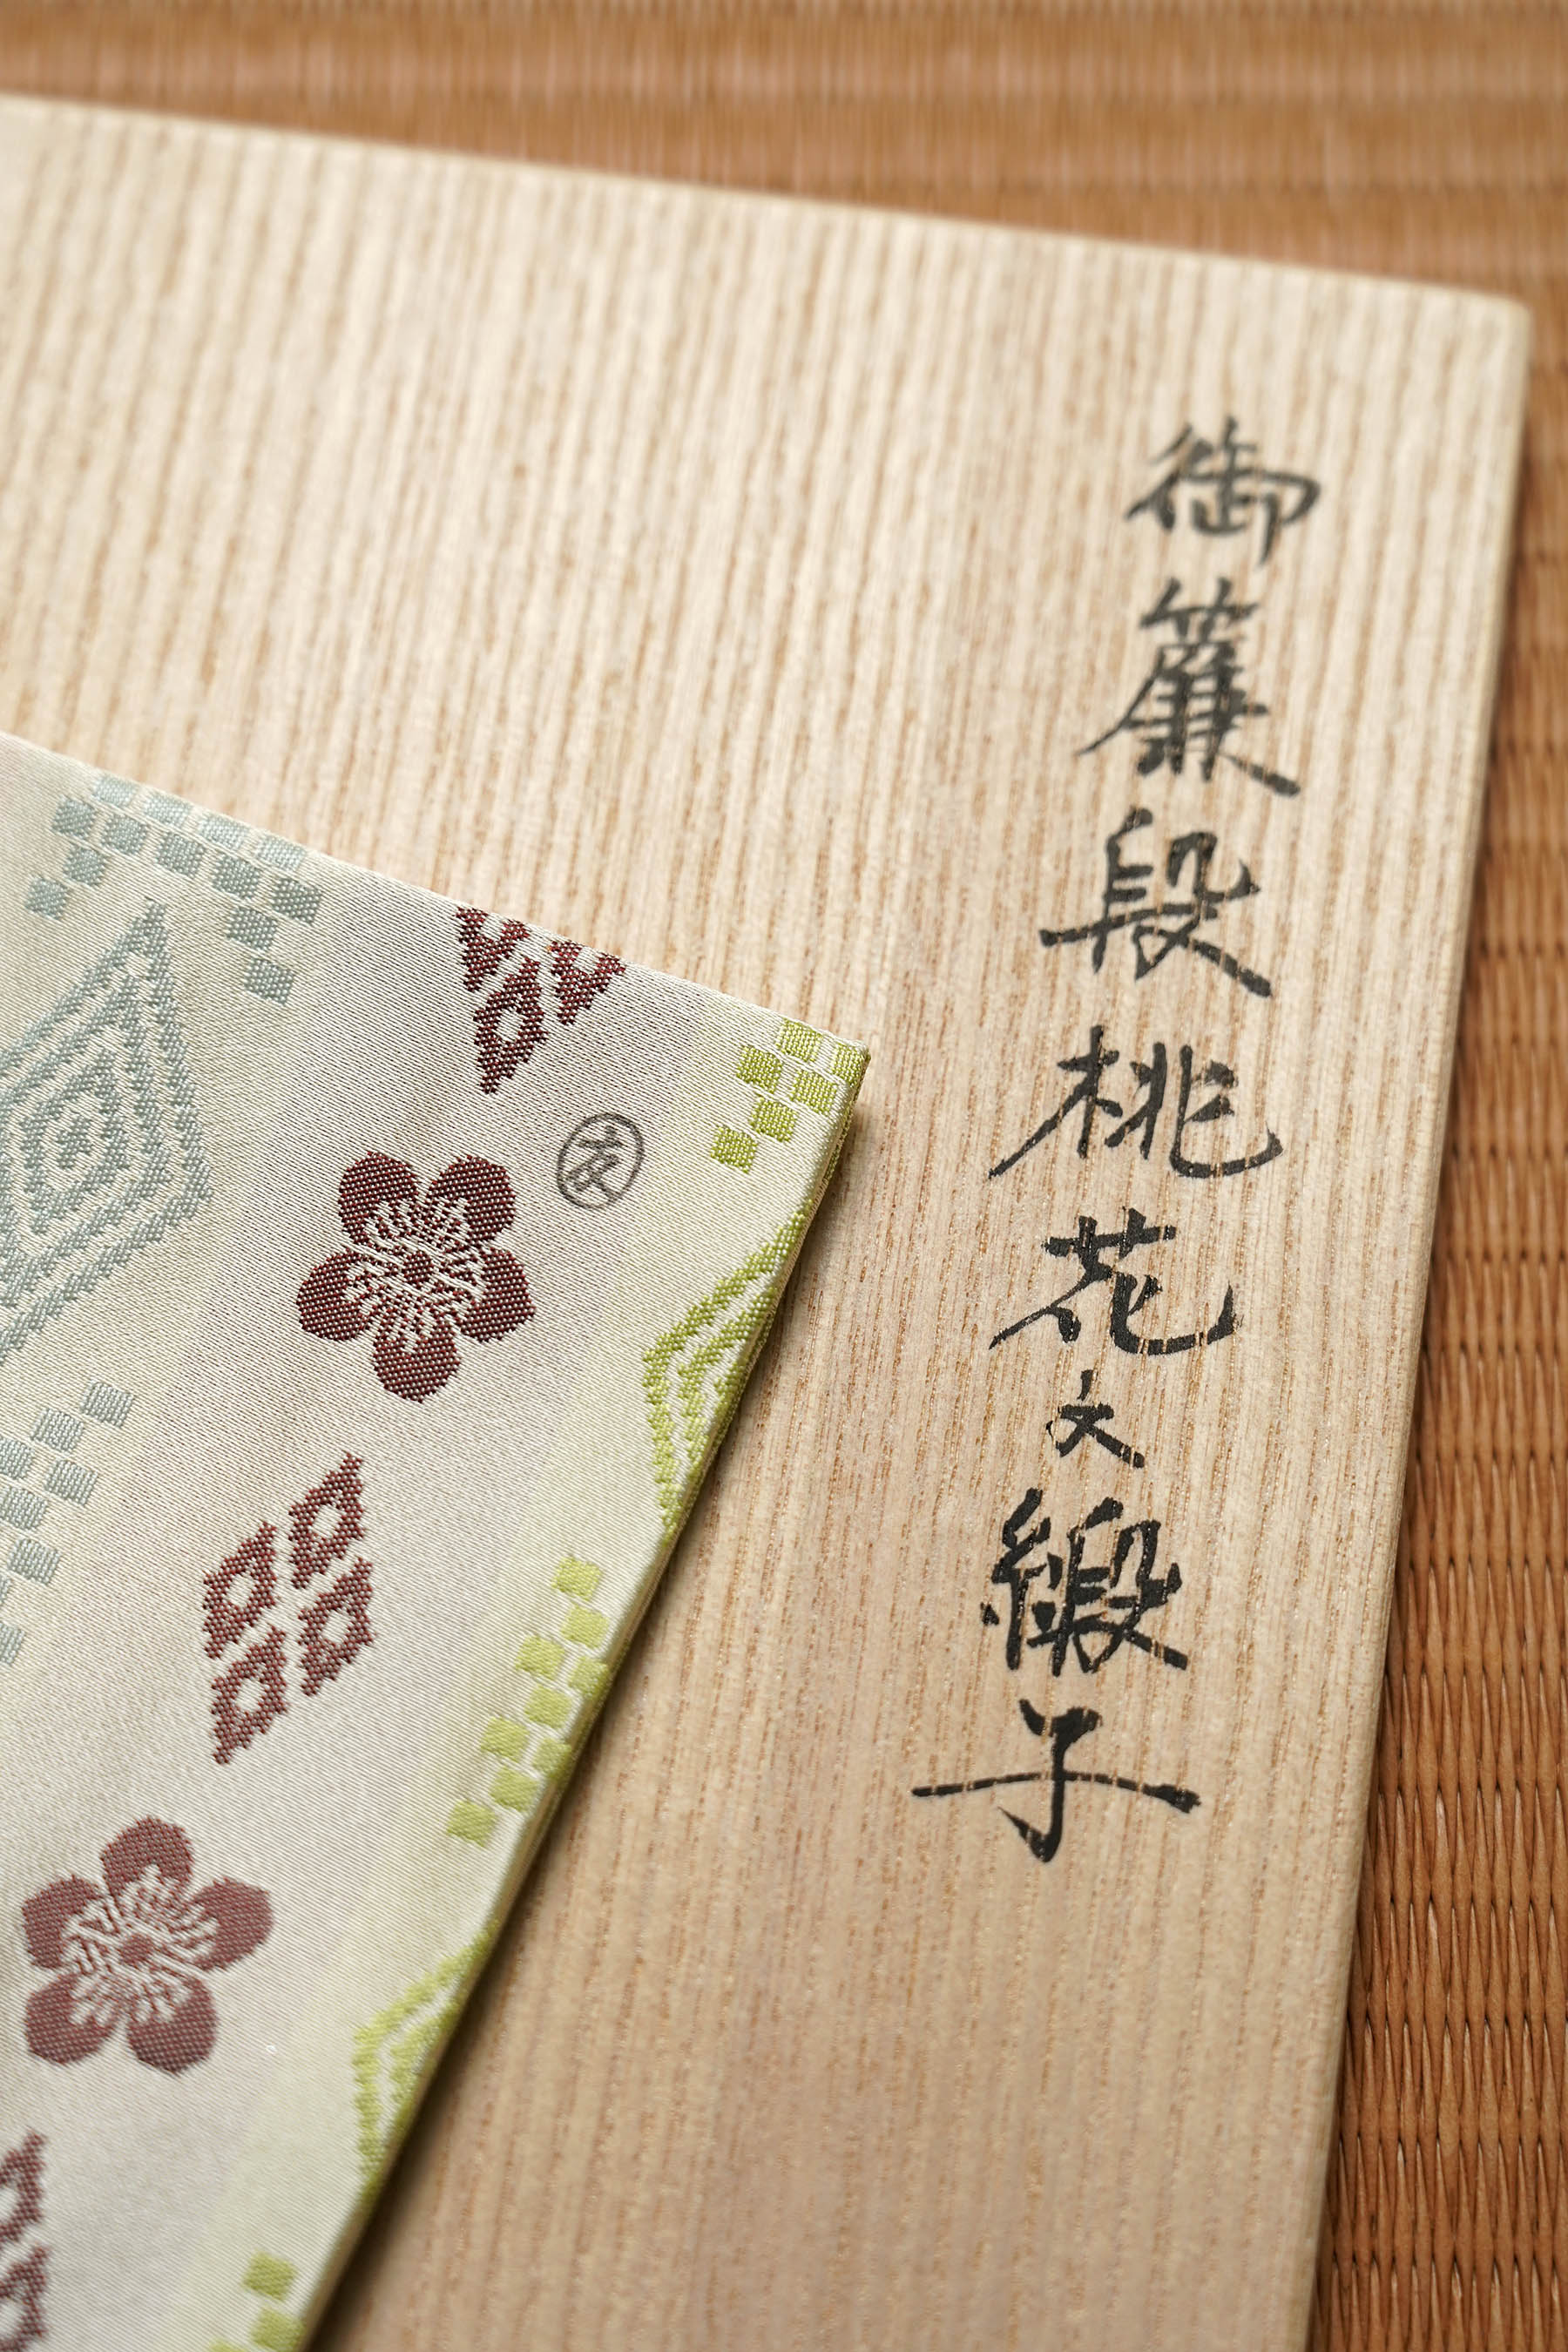 御簾段桃花文緞子